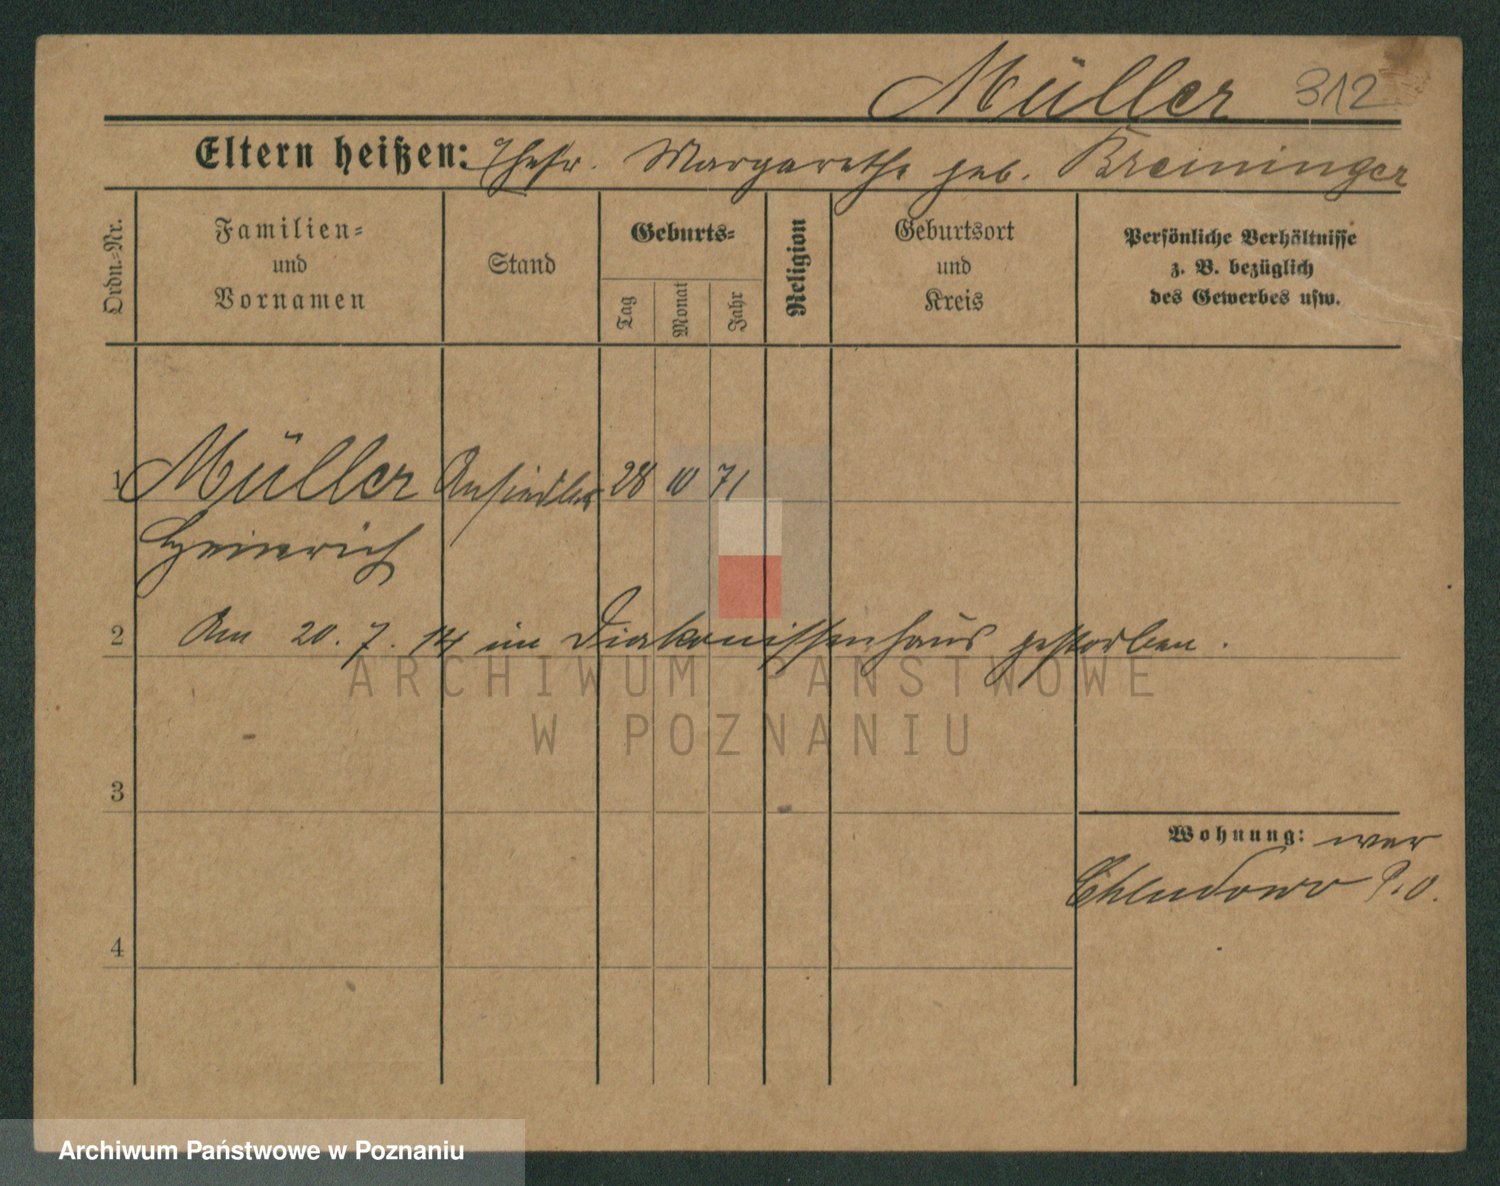 Müller 312
Eltern heißen: Ehefr. Margarethe geb. Breininger
Ordn.-Nr.
Familien-
und
Vornamen
Stand
Geburts-
Tag
Monat
Jahr
Religion
Geburtsort
und
Kreis
Persönliche Verhältnisse
z. B. bezüglich
des Gewerbes usw.
1 Müller Ansiedler 28 10 71
Heinrich
2 Am 20. 7. 14 im Diakonissenhaus gestorben.
ARCHIWUM PAŃSTWOWE
W POZNANIU
3
Wohnung: war
Chludowo P.O.
4
Archiwum Państwowe w Poznaniu